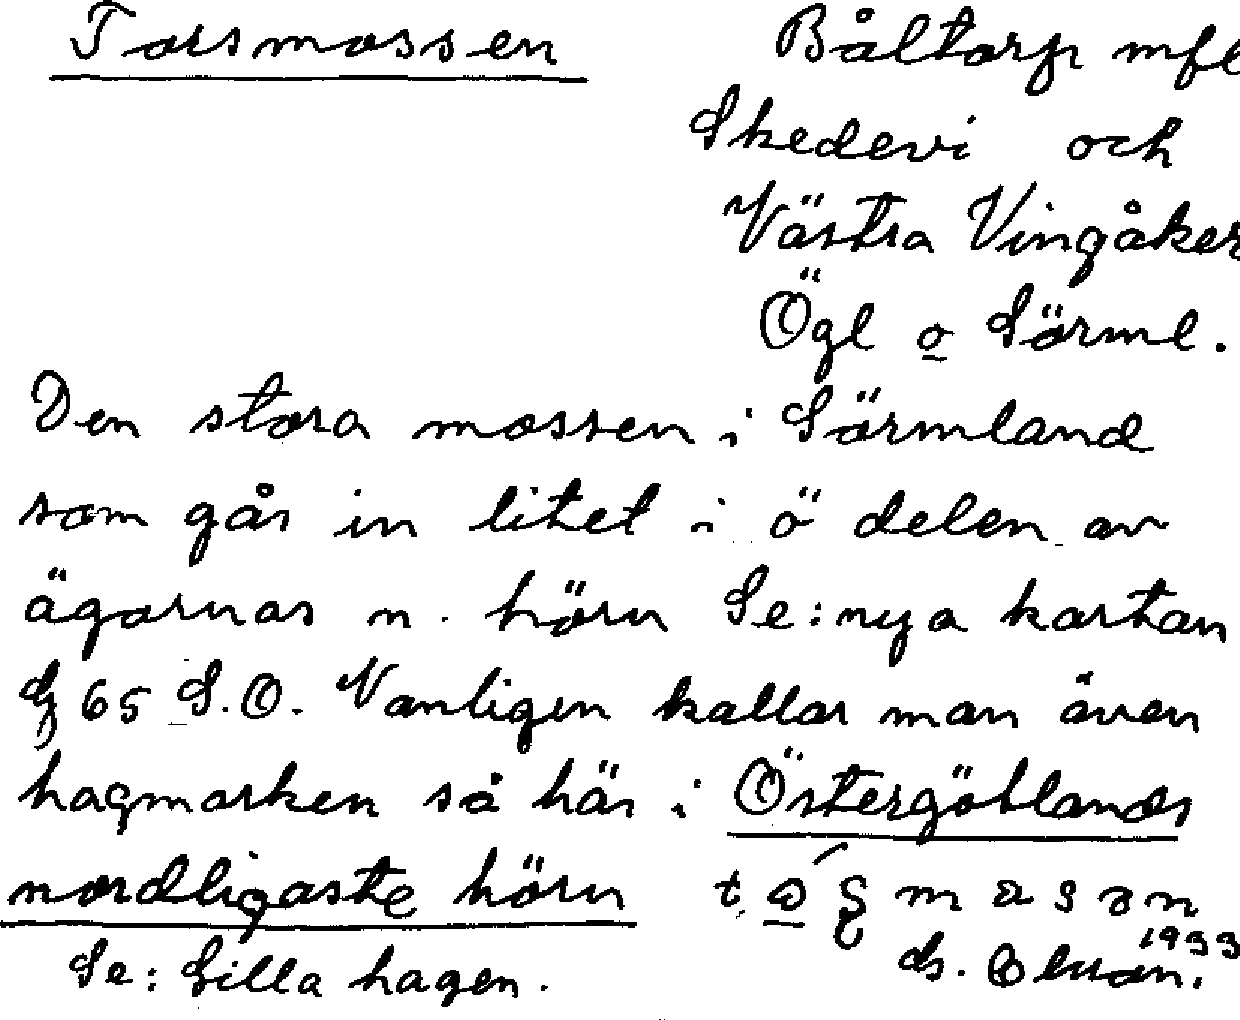 Torsmossen Båltorp mfl
Skedevi och
Västra Vingåker
Ögl o Sörml.
Den stora mossen i Sörmland
som går in litet i ö delen av
ägornas n. hörn Se: nya kartan
65 S.O. Vanligen kallar man även
hagmarken så här i Östergötlands
nordligaste hörn
1933
Se: Lilla hagen.